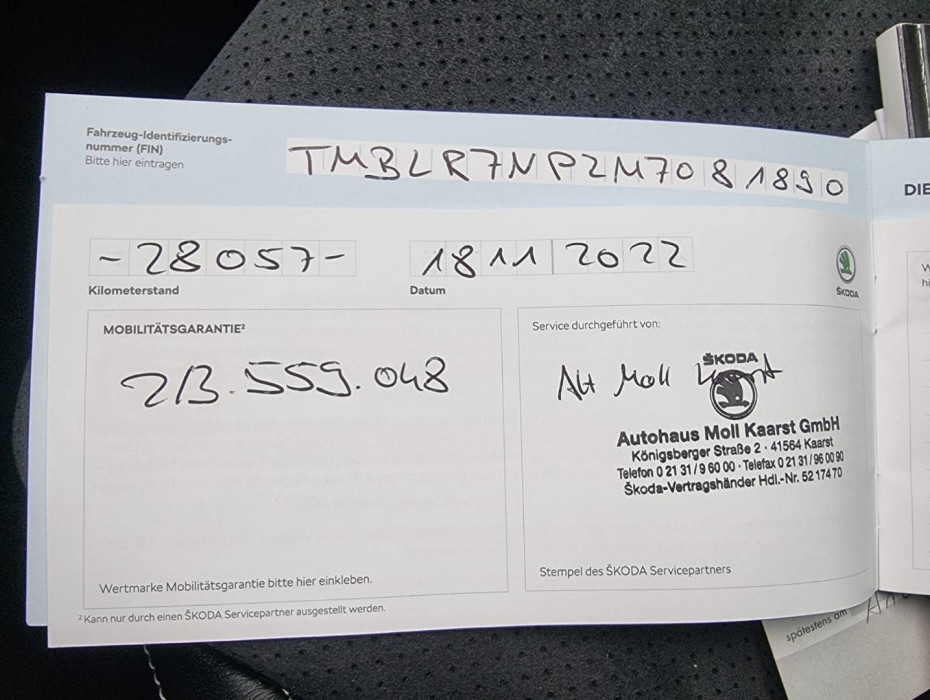 Fahrzeug-Identifizierungs-
nummer (FIN)
Bitte hier eintragen
TMBLR7NP2M7081890
-28057-
Kilometerstand
18 11 2022
Datum
ŠKODA
MOBILITÄTSGARANTIE²
2B.559.048
Wertmarke Mobilitätsgarantie bitte hier einkleben.
Service durchgeführt von:
AH Moll
ŠKODA
Autohaus Moll Kaarst GmbH
Königsberger Straße 2 · 41564 Kaarst
Telefon 0 21 31 / 9 60 00 · Telefax 0 21 31 / 96 00 90
Škoda-Vertragshänder Hdl.-Nr. 52 174 70
Stempel des ŠKODA Servicepartners
² Kann nur durch einen ŠKODA Servicepartner ausgestellt werden.
DIE
W
hi
spätestens am